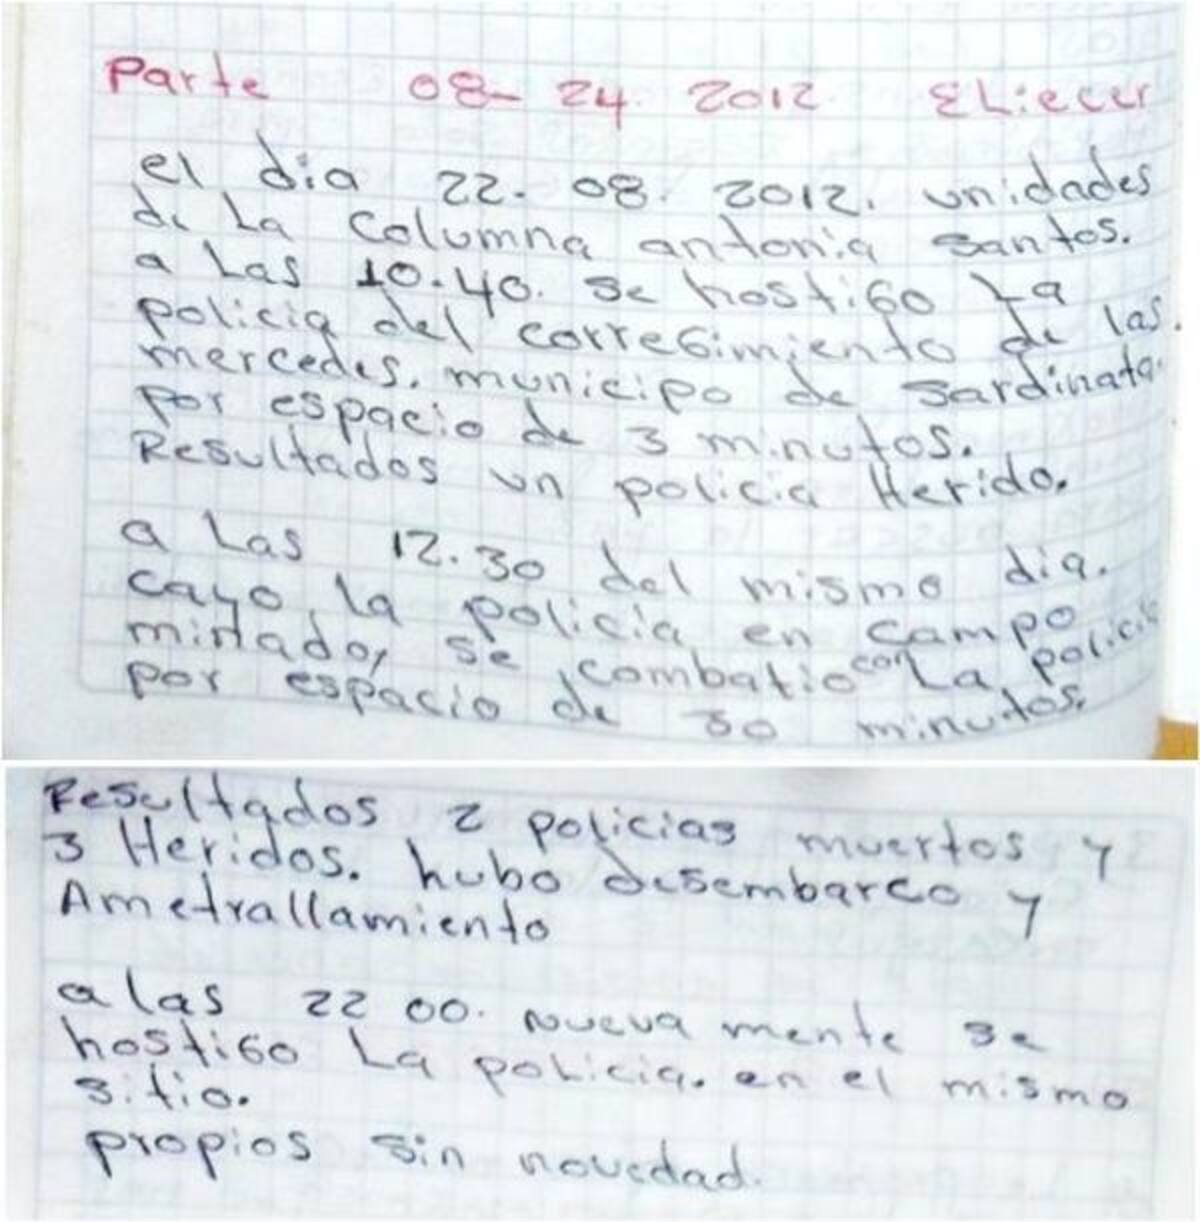 Parte 08- 24. 2012 ELiecer
el dia 22. 08. 2012. unidades
de La Columna antonia santos.
a Las 10.40. se hostiGo La
policia del correGimiento de las.
mercedes. municipo de sardinata.
por espacio de 3 minutos.
Resultados un policia Herido.
a Las 12.30 del mismo dia.
cayo, la policia en campo
minado, se combatio con La policia
por espacio de 30 minutos.
Resultados 2 policias muertos y
3 Heridos. hubo desembarco y
Ametrallamiento
a las 22 00. nueva mente se
hostiGo La poLicia. en el mismo
sitio.
propios sin novedad.